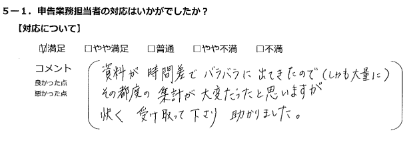 5－1．申告業務担当者の対応はいかがでしたか？
【対応について】
☑満足　□やや満足　□普通　□やや不満　□不満
コメント
良かった点
悪かった点
資料が時間差でバラバラに出てきたので(しかも大量に)
その都度の集計が大変だったと思いますが
快く受け取って下さり助かりました。